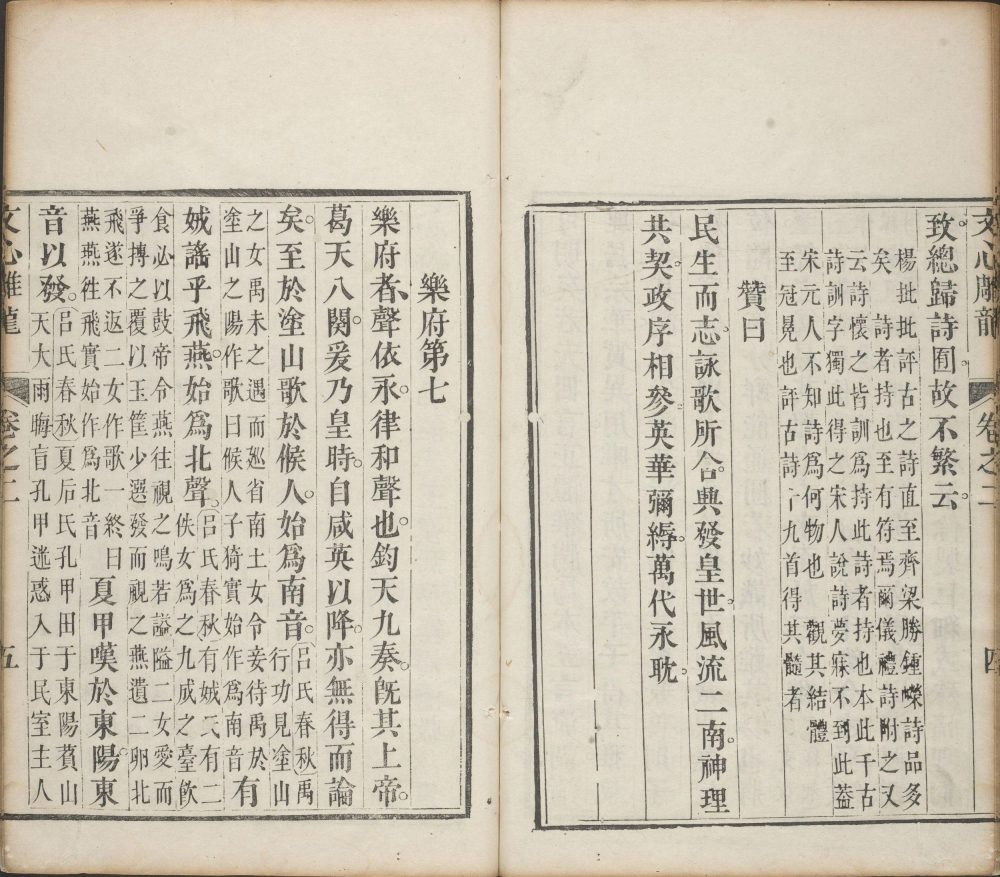 文心雕龍
卷之二
四
致總歸詩囿故不繁云
楊批批評古之詩直至齊梁勝鍾嶸詩品多
矣 詩者持也至有符焉爾儀禮詩附之又
云詩懷之皆訓爲持此詩者持也本此千古
詩訓字獨此得之宋人說詩夢寐不到此葢
宋元人不知詩爲何物也 觀其結體
至冠晃也評古詩十九首得其髓者
贊曰
民生而志詠歌所合典發皇世風流二南神理
共契政序相參英華彌縟萬代永耽
樂府第七
樂府者聲依永律和聲也鈞天九奏旣其上帝
葛天八闋爰乃皇時自咸英以降亦無得而論
矣至於塗山歌於候人始爲南音呂氏春秋禹
行功見塗山
之女禹未之遇而廵省南土女令妾待禹於
塗山之陽作歌曰候人子猗實始作爲南音有
娀謠乎飛燕始爲北聲呂氏春秋有娀氏有二
佚女爲之九成之臺飮
食必以鼓帝令燕往視之鳴若謚隘二女愛而
爭摶之覆以玉筐少選發而視之燕遺二卵北
飛遂不返二女作歌一終曰
燕燕徃飛實始作爲北音夏甲嘆於東陽東
音以發呂氏春秋夏后氏孔甲田于東陽萯山
天大雨晦盲孔甲迷惑入于民室主人
文心雕龍
卷之二
五